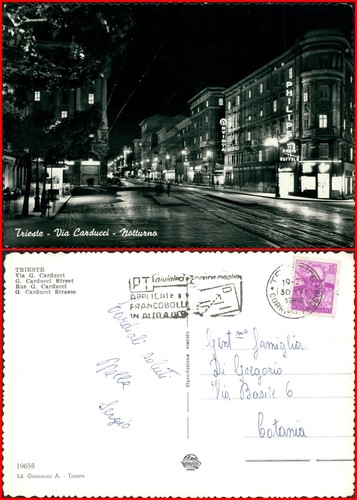 PHILIPS
Trieste - Via Carducci - Notturno
TRIESTE
Via G. Carducci
G. Carducci Street
Rue G. Carducci
G. Carducci Strasse
PT
APPLICATE I
FRANCOBOLLI
IN ALTO A D
19
30
Cordiali saluti
Sergio
Gent.ma famiglia
Di Gregorio
Via Basile 6
Catania
Riproduzione vietata
19658
Ed. Gussmann A. - Trieste